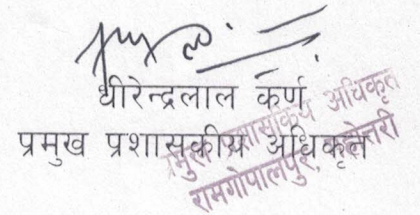 धीरेन्द्रलाल कर्ण
प्रमुख प्रशासकीय अधिकृत
प्रमुख प्रशासकीय अधिकृत
रामगोपालपुर, महोत्तरी